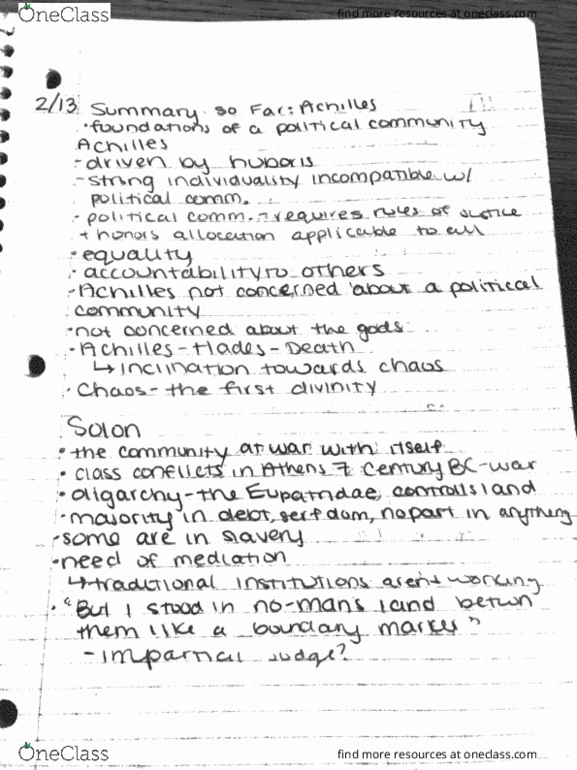 OneClass
find more resources at oneclass.com
2/13 Summary so Far: Achilles
• foundations of a political community
Achilles
- driven by huboris
- string individuality incompatible w/
political comm.
• political comm. → requires rules of justice
+ honors allocation applicable to all
• equality
• accountability to others
• Achilles not concerned about a political
community
• not concerned about the gods
• Achilles - Hades - Death
↳ inclination towards chaos
• Chaos - the first divinity
Solon
• the community at war with itself
• class conflicts in Athens 7 Century BC - war
• oligarchy - the Eupatridae, controls land
• majority in debt, serfdom, no part in anything
• some are in slavery
• need of mediation
↳ traditional institutions aren't working
• "But I stood in no-man's land betwn
them like a boundary marker"
- impartial judge?
OneClass
find more resources at oneclass.com